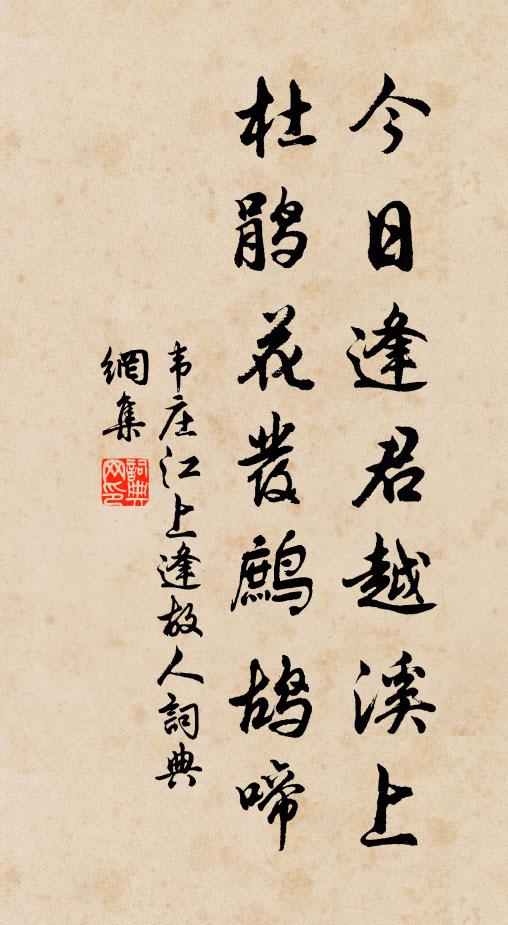 今日逢君越溪上
杜鹃花發鷓鴣啼
韦庄江上逢故人詞典
網集
詞典網印